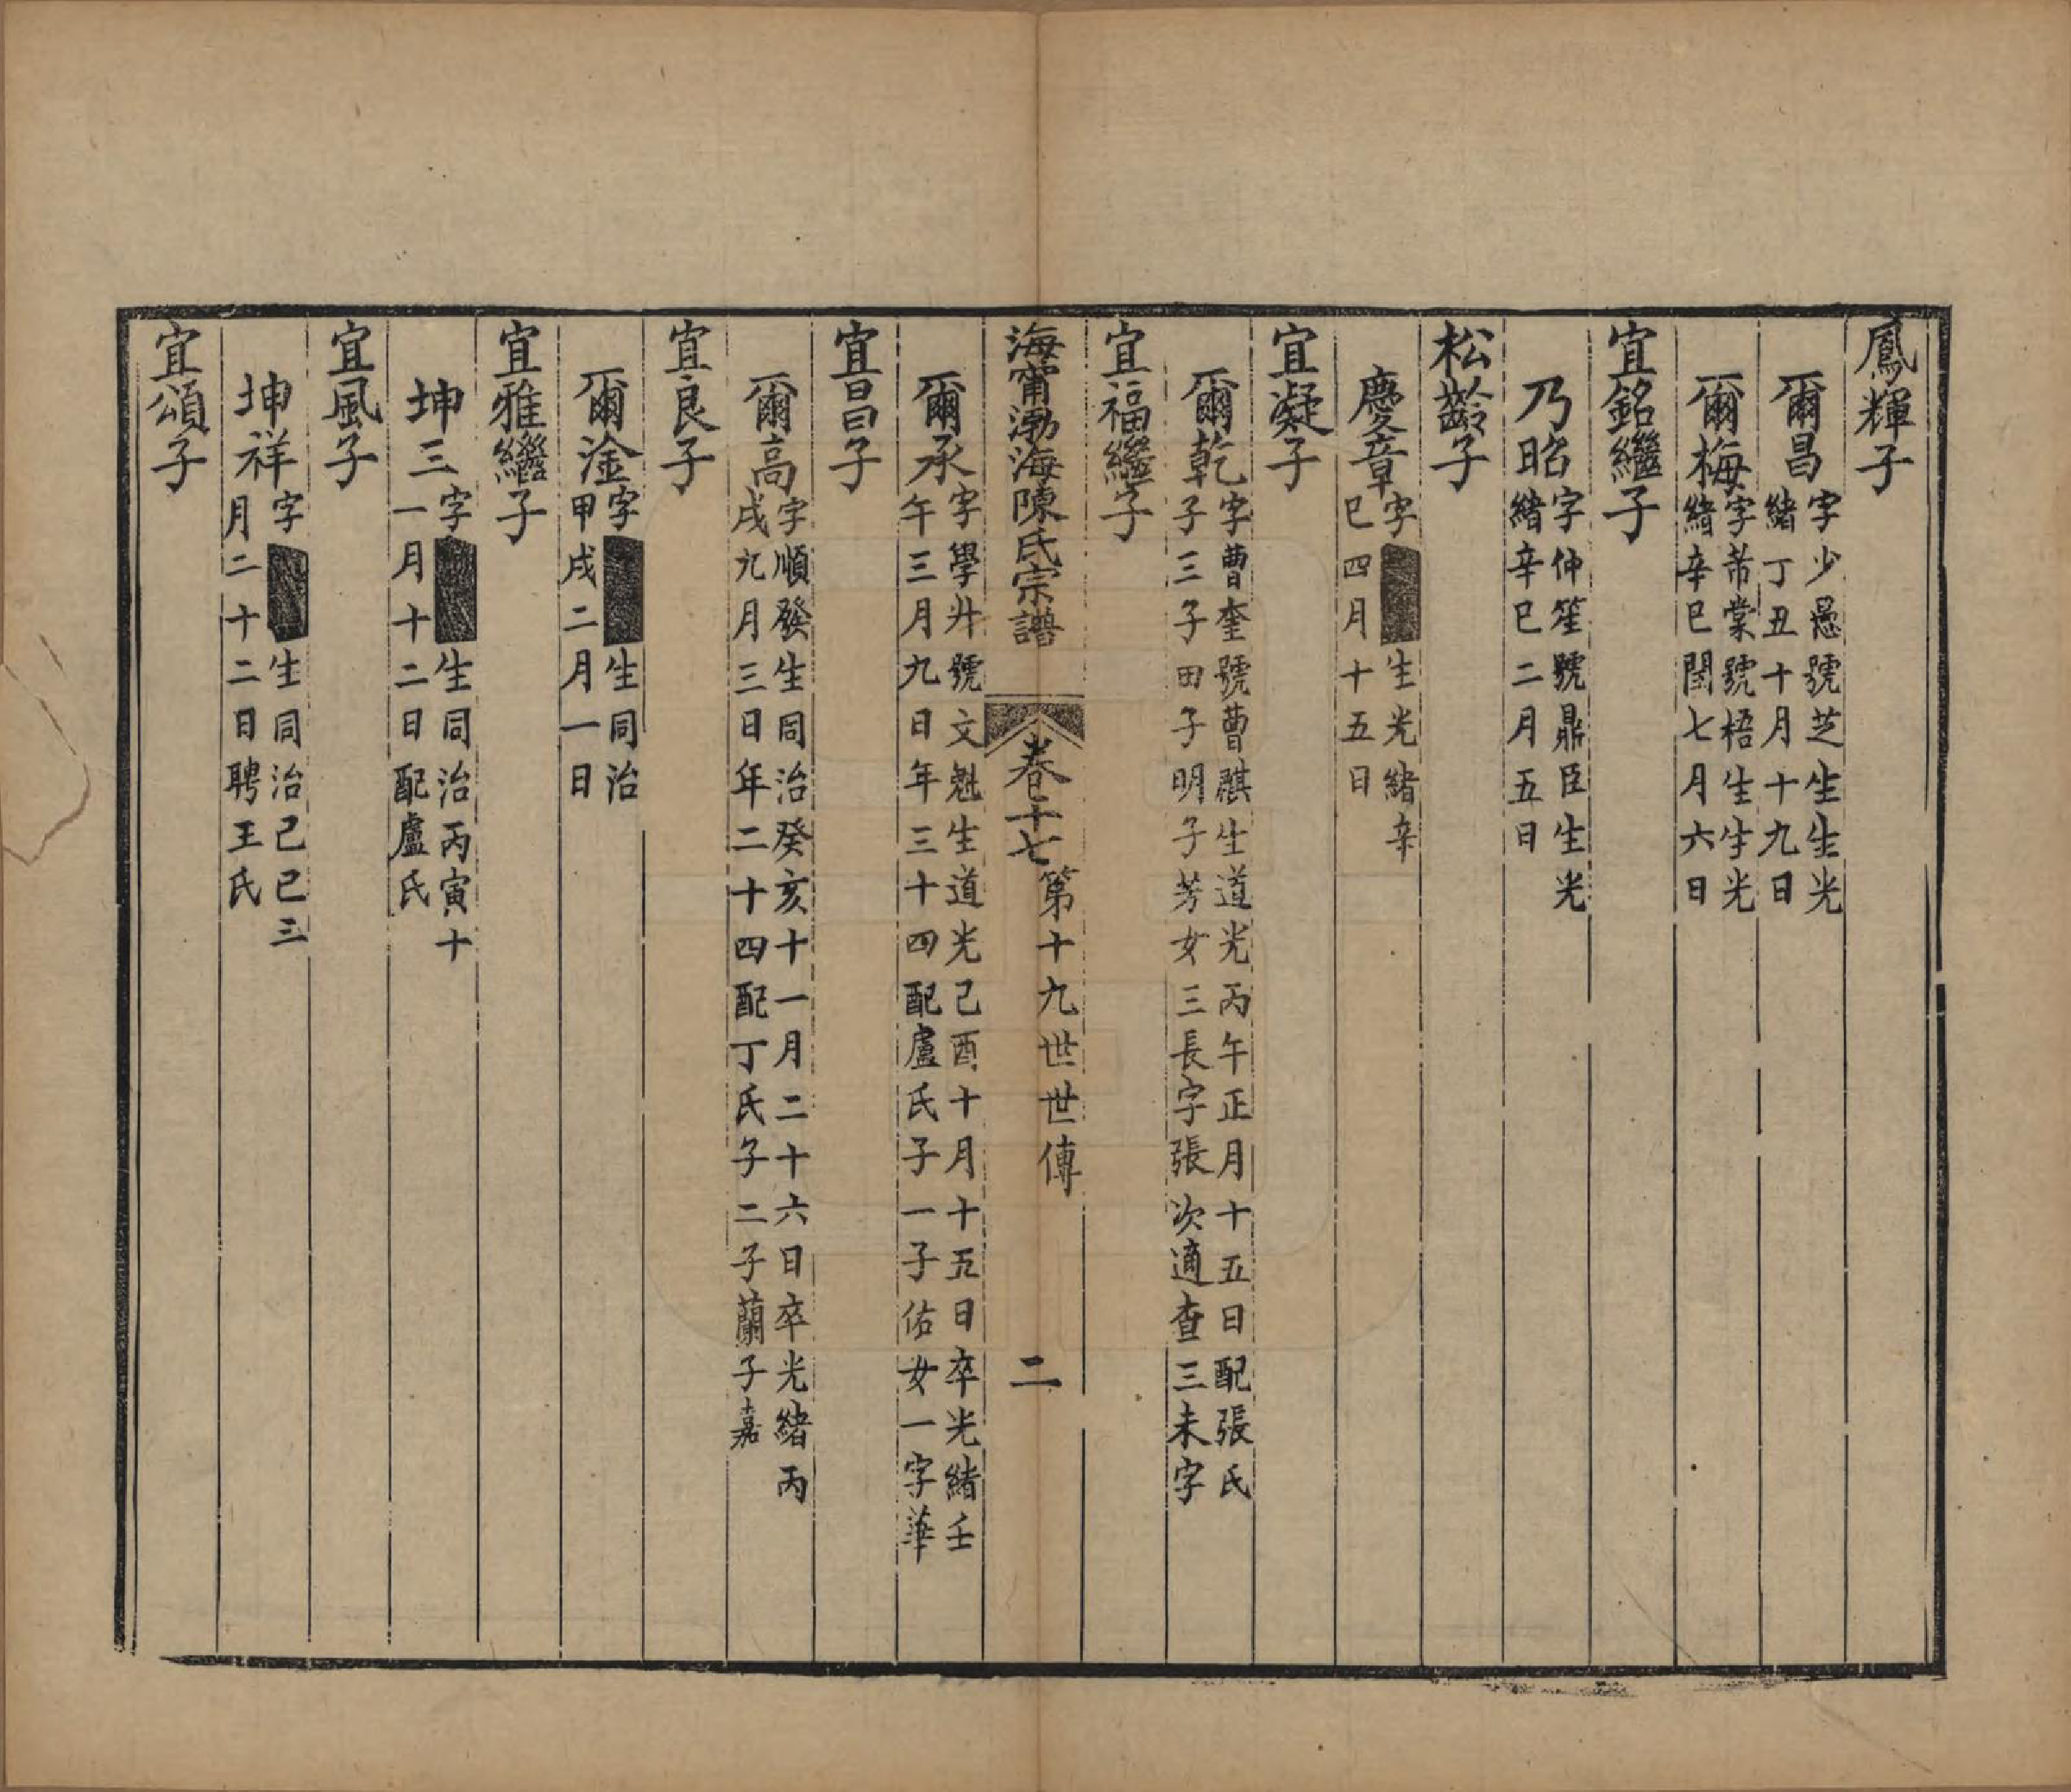 鳳輝子
爾昌字少愚號芝生生光
緒丁丑十月十九日
爾梅字芾棠號梧生生光
緒辛巳閏七月六日
宜銘繼子
乃昭字仲笙號鼎臣生光
緒辛巳二月五日
松齡子
慶章字 生光緒辛
巳四月十五日
宜凝子
爾乾字曹奎號曹麒生道光丙午正月十五日配張氏
子三子田子明子芳女三長字張次適查三未字
宜福繼子
海甯渤海陳氏宗譜 卷二十七 第十九世世傳 二
爾承字學廾號文魁生道光己酉十月十五日卒光緒壬
午三月九日年三十四配盧氏子一子佑女一字華
宜昌子
爾高字順發生同治癸亥十一月二十六日卒光緒丙
戌九月三日年二十四配丁氏子二子蘭子嘉
宜良子
爾淦字 生同治
甲戌二月一日
宜雅繼子
坤三字 生同治丙寅十
一月十二日配盧氏
宜風子
坤祥字 生同治己巳三
月二十二日聘王氏
宜頌子